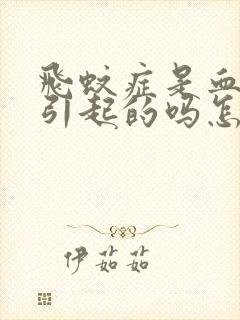 飛蚊症是血
引起的吗怎
伊茹茹